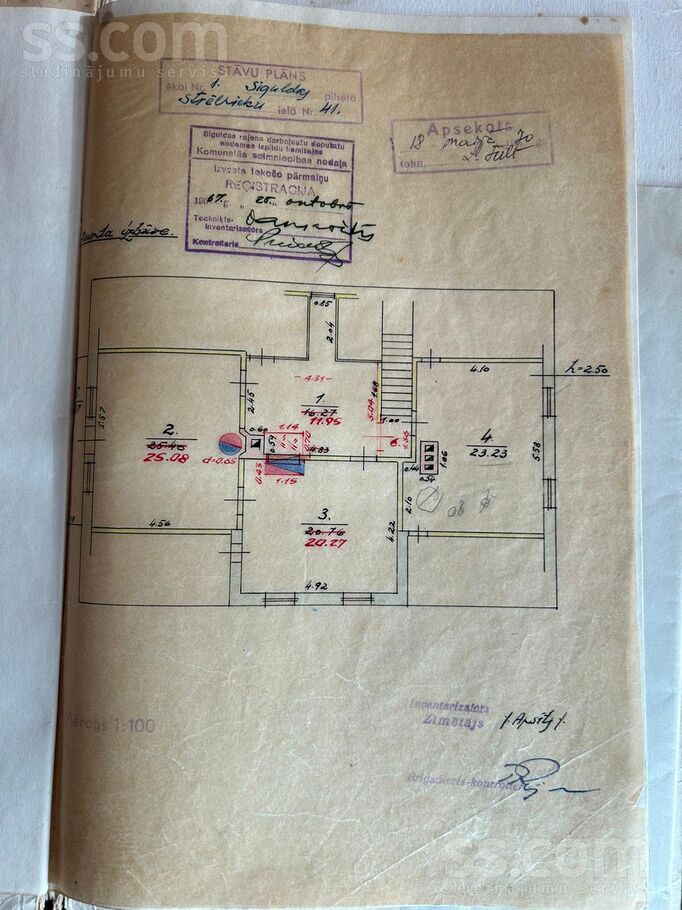 ss.com
sludinājumu serviss
STĀVU PLĀNS
ēkai Nr. 1. Siguldas pilsētā
Strēlnieku ielā Nr. 41.
Apsekots
18 maijā 70
Siguldas rajona darbaļaužu deputātu
padomes izpildu komitejas
Komunālās saimniecības nodaļa
Izvesta tekošo pārmaiņu
REĢISTRĀCIJA
1967.g. „ 25. „ oktobrī
Techniķis-
inventarizators
Kontrolieris
izbūve.
0.85
2.04
4.10
h=2.50
4.31
1.68
5.57
2.45
1.
16.27
11.95
5.04
1.00
2.
25.40
25.08
0.60
1.14
0.59
0.70
1.55
4.
23.23
5.58
d=0.65
4.83
0.43
1.15
0.44
1.06
0.54
08
4.56
3.
20.76
20.27
4.22
2.10
4.92
Mērogs 1:100
Inventarizators
Zīmētājs
Brigadieris-kontrolieris
ss.com
sludinājumu serviss